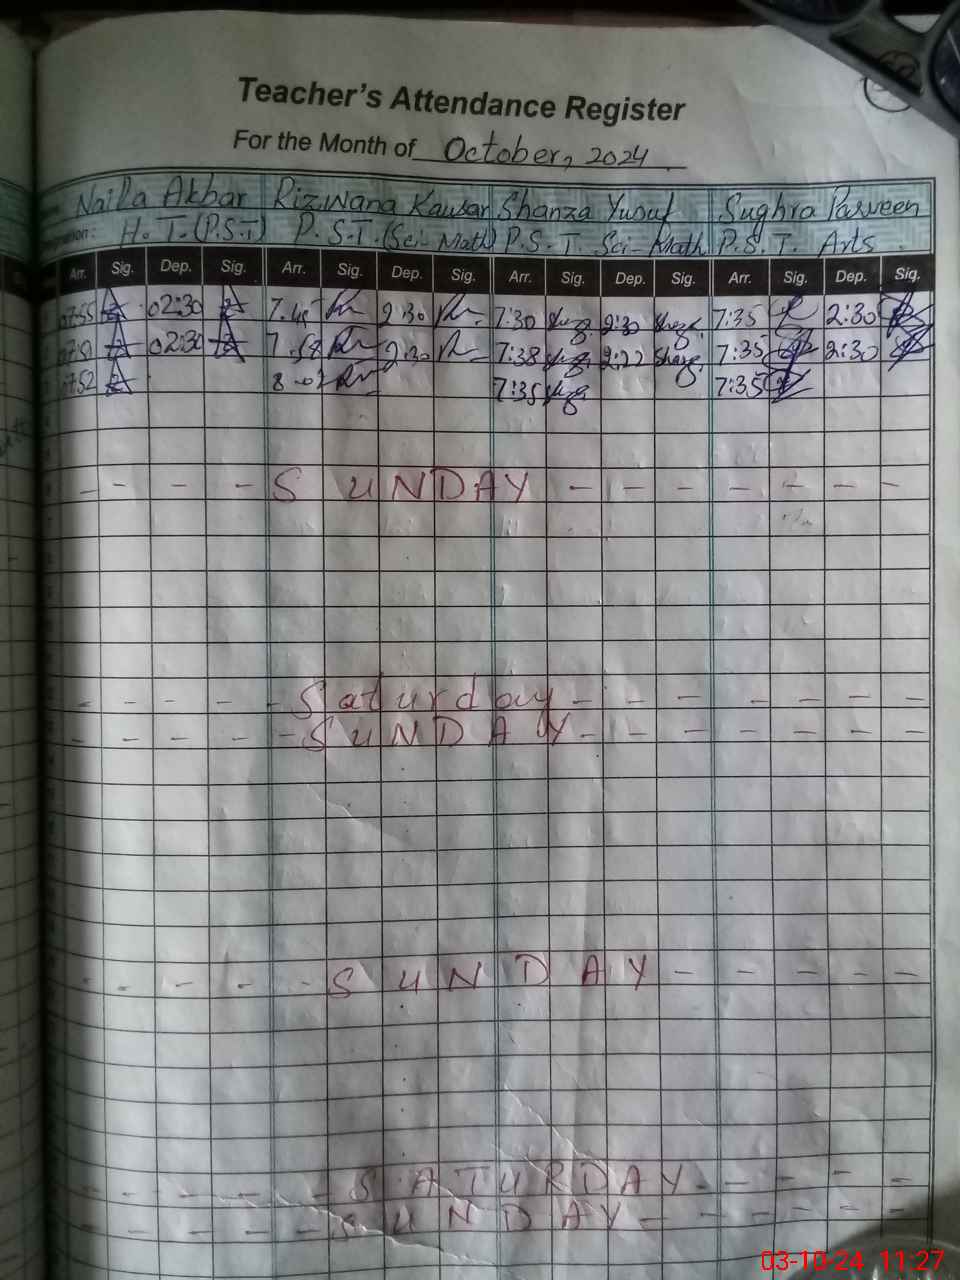 Teacher's Attendance Register
For the Month of October, 2024
Naila Akbar Rizwana Kausar Shanza Yusuf Sughra Parveen
H. T. (P.S.T) P. S.T. (Sci-Math) P. S. T. Sci-Math P. S. T. Arts
Arr. Sig. Dep. Sig. Arr. Sig. Dep. Sig. Arr. Sig. Dep. Sig. Arr. Sig. Dep. Sig.
07:55 02:30 2:30 7:30 2:30 7:35 2:30
02:30 7.58 2:30 7:38 2:22 7:35 2:30
07:52 7:35 7:35
- - - - SUNDAY - - - - - - -
- - - - - Saturday - - - - - - -
- - - - - SUNDAY - - - - - - -
- - - - - SUNDAY - - - - -
- - - - - SATURDAY - - - - -
- - - - - SUNDAY - - - - - -
03-10-24 11:27